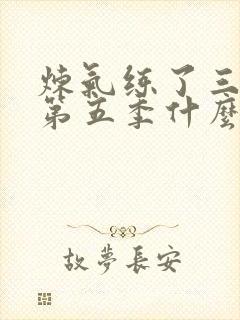 炼氣练了三
第五季什麼
故夢長安